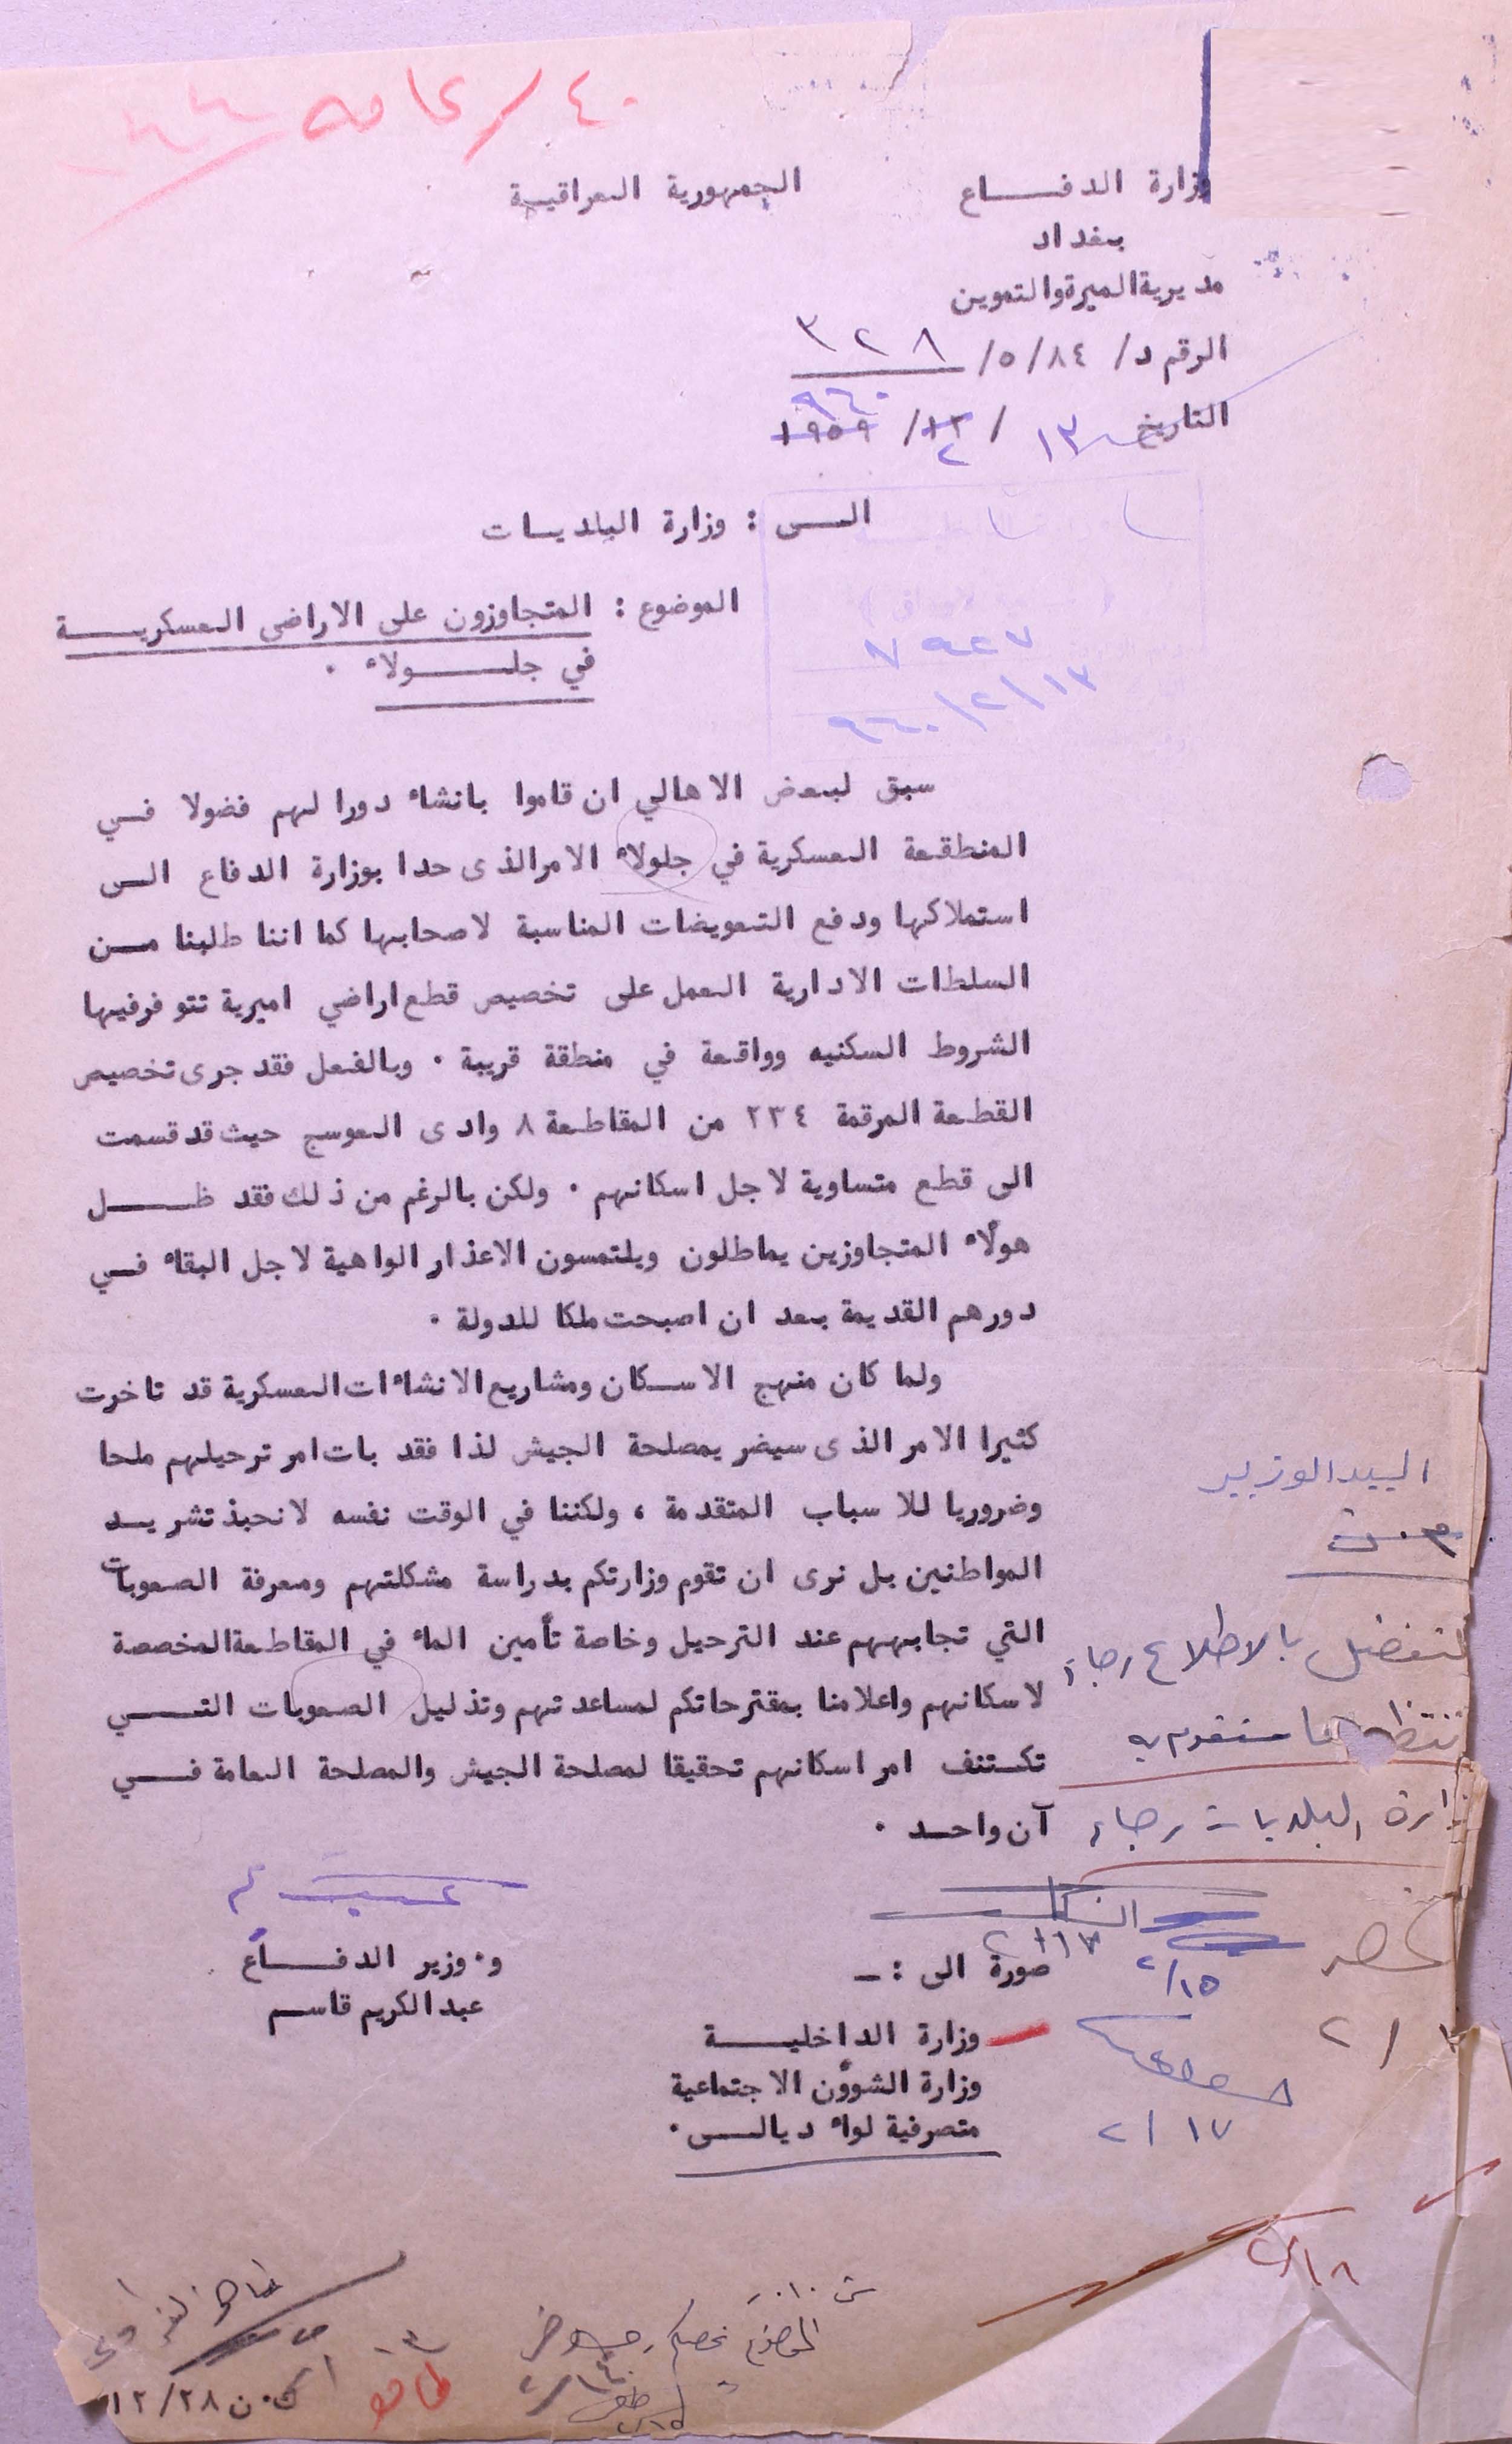 ٤٠/خاصه
الجمهورية العراقيـة
وزارة الدفـــاع
بغداد
مديرية الميرة والتموين
الرقم د/ ٥/٨٤/ ٣٢٨
التاريخ ١٣ / ١٢/ ١٩٥٩
٢ ٩٦٠
الـى : وزارة البلديـات
الموضوع : المتجاوزون على الاراضى العسكريـــة
في جلـــولاء ٠
٩٦٠/٢/١٣
سبق لبعض الاهالي ان قاموا بانشاء دورا لهم فضولا فـي
المنطقعة العسكرية في جلولاء الامر الذى حدا بوزارة الدفاع الـى
استملاكها ودفع التعويضات المناسبة لاصحابها كما اننا طلبنا مـن
السلطات الادارية العمل على تخصيص قطع اراضي اميرية تتوفر فيها
الشروط السكنيه وواقعة في منطقة قريبة ٠ وبالفعل فقد جرى تخصيص
القطعة المرقمة ٢٣٤ من المقاطعة ٨ وادى العوسج حيث قد قسمت
الى قطع متساوية لاجل اسكانهم ٠ ولكن بالرغم من ذلك فقد ظـــل
هولاء المتجاوزين يماطلون ويلتمسون الاعذار الواهية لاجل البقاء فـي
دورهم القديمة بعد ان اصبحت ملكا للدولة ٠
ولما كان منهج الاسـكان ومشاريع الانشاءات العسكرية قد تاخرت
كثيرا الامر الذى سيضر بمصلحة الجيش لذا فقد بات امر ترحيلهم ملحا
وضروريا للاسباب المتقدمة ، ولكننا في الوقت نفسه لانحبذ تشريـد
المواطنين بل نرى ان تقوم وزارتكم بدراسة مشكلتهم ومعرفة الصعوبات
التي تجابههم عند الترحيل وخاصة تأمين الماء في المقاطعة المخصصة
لاسكانهم واعلامنا بمقترحاتكم لمساعدتهم وتذليل الصعوبات التـــي
تكـتنف امر اسكانهم تحقيقا لمصلحة الجيش والمصلحة العامة فـــي
آن واحـد ٠
و٠ وزير الدفـــاع
عبد الكريم قاسـم
صورة الى :ـ
وزارة الداخليـــة
وزارة الشوؤن الاجتماعية
متصرفية لواء ديالـى ٠
السيد الوزير
للتفضل بالاطلاع رجاء
ما ستقوم به
وزارة البلديات رجاء
٢/١٥
٢/١٧
٢/١٨
ك٠ن ١٢/٢٨